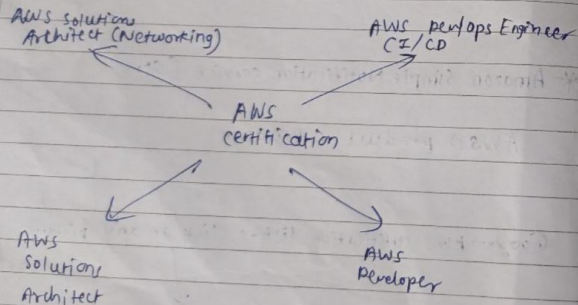 AWS Solutions
Architect (Networking)
AWS DevOps Engineer
CI/CD
AWS
certification
AWS
Solutions
Architect
AWS
Developer